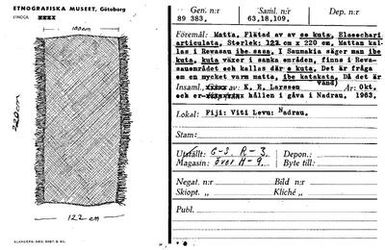 ETNOGRAFISKA MUSEET, Göteborg
100 cm
220 cm
122 cm
Gen. n:r
89 383,
Saml. n:r
63,18,109,
Dep. n:r
Föremål: Matta, Flätad av av se kuta, Eleochari
articulata, Storlek: 122 cm x 220 cm, Mattan kal-
las i Revasau ibe sasa, I Saumakia säger man
ibe kuta, kuta växer i sanka områden, finns i Reva-
sauområdet och kallas där e kuta, Det är fråga
om en mycket varm matta, ibe katakata, Då det är
vand)
Insaml. av K. E. Larsson År: Okt.
och er- hållen i gåva i Nadrau, 1963,
Lokal: Fiji: Viti Levu: Nadrau,
Stam:
Utställt: G-S. R-3. Depon.:
Magasin: över H-9. Byte till:
Negat. n:r Bild n:r
Skiopt. » Kliché »
Publ.